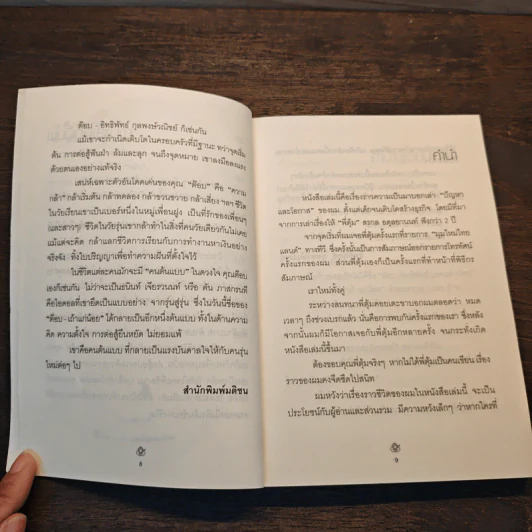 ต๊อบ - อิทธิพัทธ์ กุลพงษ์วณิชย์ ก็เช่นกัน
แม้เขาจะกำเนิดเติบโตในครอบครัวที่มีฐานะ ทว่าจุดเริ่ม
ต้น การต่อสู้ฟันฝ่า ล้มและลุก จนถึงจุดหมาย เขาลงมือลงแรง
ด้วยตนเองอย่างแท้จริง
เสน่ห์เฉพาะตัวอันโดดเด่นของคุณ "ต๊อบ" คือ "ความ
กล้า" กล้าเริ่มต้น กล้าทดลอง กล้าขวนขวาย กล้าเสี่ยง ฯลฯ ชีวิต
ในวัยเรียนเขาเป็นเบอร์หนึ่งในหมู่เพื่อนฝูง เป็นที่รักของเพื่อนๆ
และสาวๆ ชีวิตในวัยรุ่นเขากล้าทำในสิ่งที่คนวัยเดียวกันไม่เคย
แม้แต่จะคิด กล้าแลกชีวิตการเรียนกับการทำงานหาเงินอย่าง
จริงจัง ทิ้งใบปริญญาเพื่อทำความฝันที่ตั้งใจไว้
ในชีวิตแต่ละคนมักจะมี "คนต้นแบบ" ในดวงใจ คุณต๊อบ
เองก็เช่นกัน ไม่ว่าจะเป็นธนินท์ เจียรวนนท์ หรือ ตัน ภาสกรนที
คือไอดอลที่เขายึดเป็นแบบอย่าง จากรุ่นสู่รุ่น ซึ่งในวันนี้ชื่อของ
"ต๊อบ - เถ้าแก่น้อย" ได้กลายเป็นอีกหนึ่งต้นแบบ ทั้งในด้านความ
คิด ความตั้งใจ การต่อสู้ยืนหยัด ไม่ยอมแพ้
เขาคือคนต้นแบบ ที่กลายเป็นแรงบันดาลใจให้กับคนรุ่น
ใหม่ต่อๆ ไป
สำนักพิมพ์มติชน
8
คำนำ
หนังสือเล่มนี้คือเรื่องราวความเป็นมาบอกเล่า "ปัญหา
และโอกาส" ของผม ตั้งแต่เด็กจนเติบโตสร้างธุรกิจ โดยมีที่มา
จากการเล่าเรื่องให้ "พี่ตุ้ม" สรกล อดุลยานนท์ ฟังกว่า 2 ปี
จากจุดเริ่มที่ผมเจอพี่ตุ้มครั้งแรกที่รายการ "มุมใหม่ไทย
แลนด์" ทางทีวี ซึ่งครั้งนั้นเป็นการสัมภาษณ์ออกรายการโทรทัศน์
ครั้งแรกของผม ส่วนพี่ตุ้มเองก็เป็นครั้งแรกที่ทำหน้าที่พิธีกร
สัมภาษณ์
เราใหม่ทั้งคู่
ระหว่างสนทนาพี่ตุ้มคอยเตะขาบอกผมตลอดว่า หมด
เวลาๆ ถึงช่วงเบรกแล้ว นั่นคือการพบกันครั้งแรกของเรา ซึ่งหลัง
จากนั้นผมก็มีโอกาสเจอกับพี่ตุ้มอีกหลายครั้ง จนกระทั่งเกิด
หนังสือเล่มนี้ขึ้นมา
ต้องขอบคุณพี่ตุ้มจริงๆ หากไม่ได้พี่ตุ้มเป็นคนเขียน เรื่อง
ราวของผมคงจืดชืดไปสนิท
ผมหวังว่าเรื่องราวชีวิตของผมในหนังสือเล่มนี้ จะเป็น
ประโยชน์กับผู้อ่านและส่วนรวม มีความหวังเล็กๆ ว่าหากใครที่
9